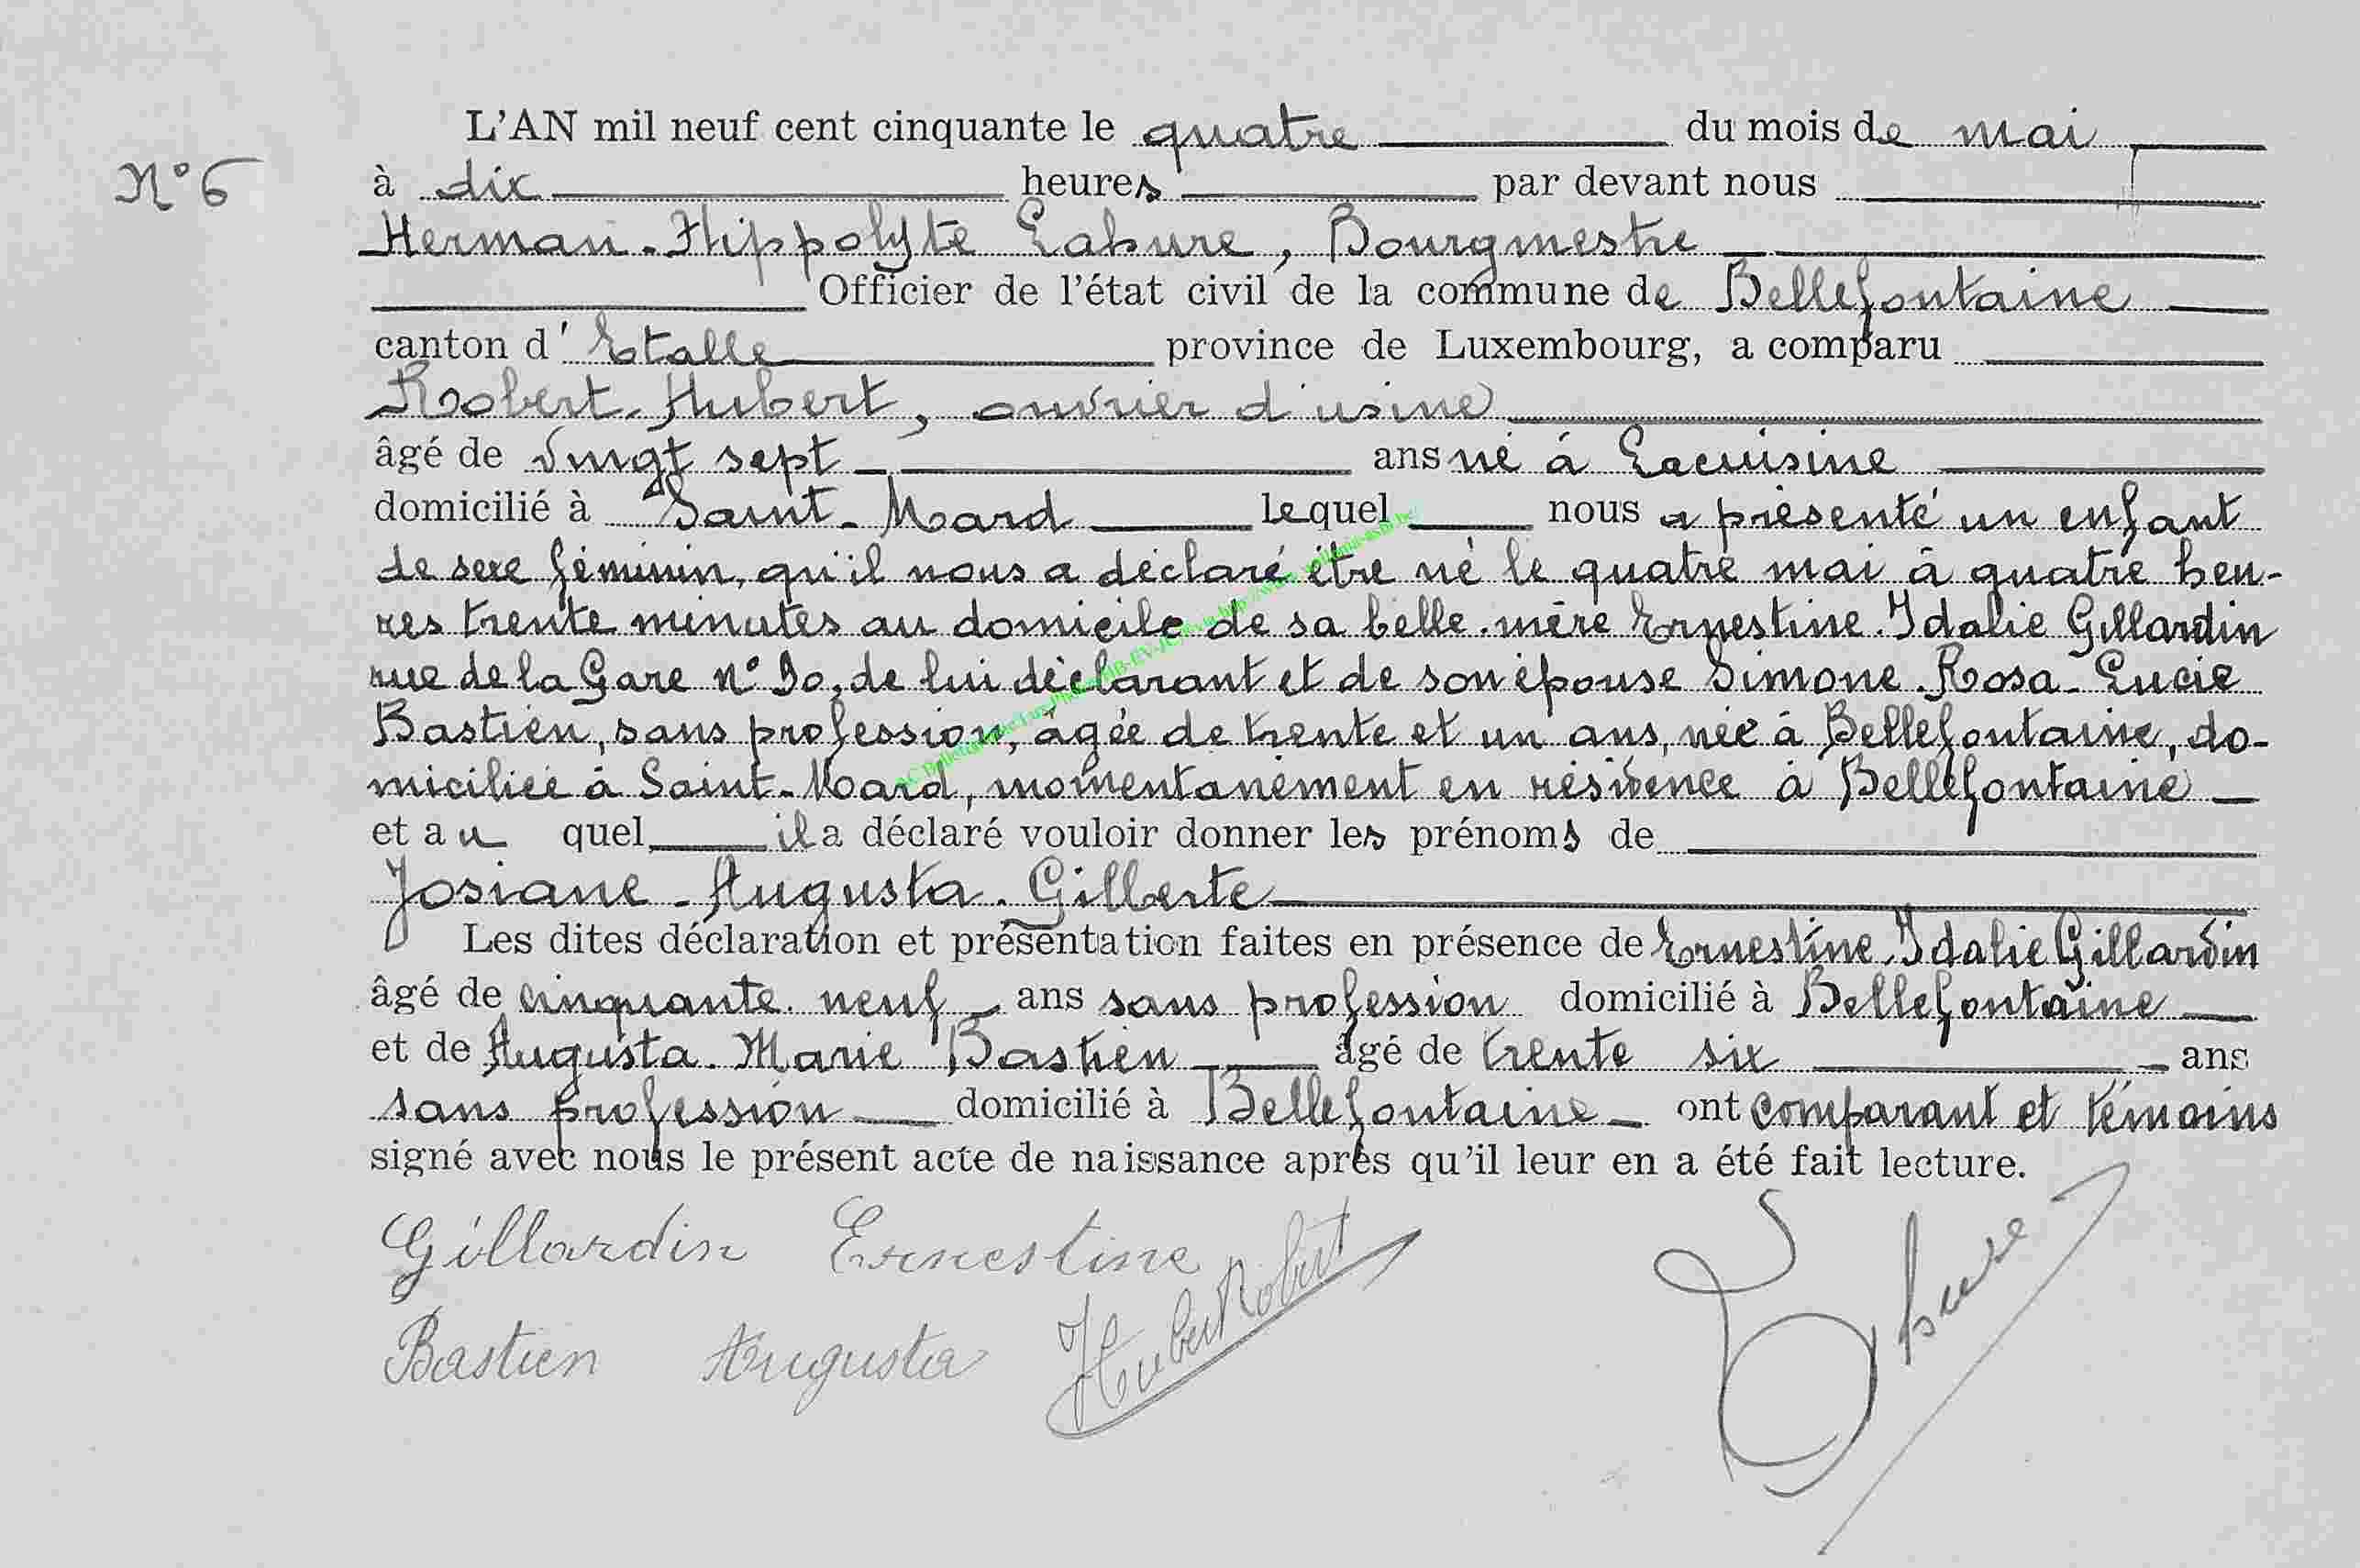 L'AN mil neuf cent cinquante le quatre du mois de mai
N° 6
à dix heures par devant nous
Herman-Hippolyte Lahure, Bourgmestre
Officier de l'état civil de la commune de Bellefontaine
canton d'Etalle province de Luxembourg, a comparu
Robert-Hubert, ouvrier d'usine
âgé de vingt sept ans né à Lacuisine
domicilié à Saint-Mard lequel nous a présenté un enfant
de sexe féminin, qu'il nous a déclaré être né le quatre mai à quatre heu-
res trente minutes au domicile de sa belle-mère Ernestine-Idalie Gillardin
rue de la Gare n° 30, de lui déclarant et de son épouse Simone-Rosa-Lucie
Bastien, sans profession, âgée de trente et un ans, née à Bellefontaine, do-
miciliée à Saint-Mard, momentanément en résidence à Bellefontaine
et au quel il a déclaré vouloir donner les prénoms de
Josiane-Augusta-Gilberte
Les dites déclaration et présentation faites en présence de Ernestine-Idalie Gillardin
âgé de cinquante-neuf ans sans profession domicilié à Bellefontaine
et de Augusta-Marie Bastien âgé de trente six ans
sans profession domicilié à Bellefontaine ont comparant et témoins
signé avec nous le présent acte de naissance après qu'il leur en a été fait lecture.
Gillardin Ernestine
Hubert Robert
Bastien Augusta
Lahure